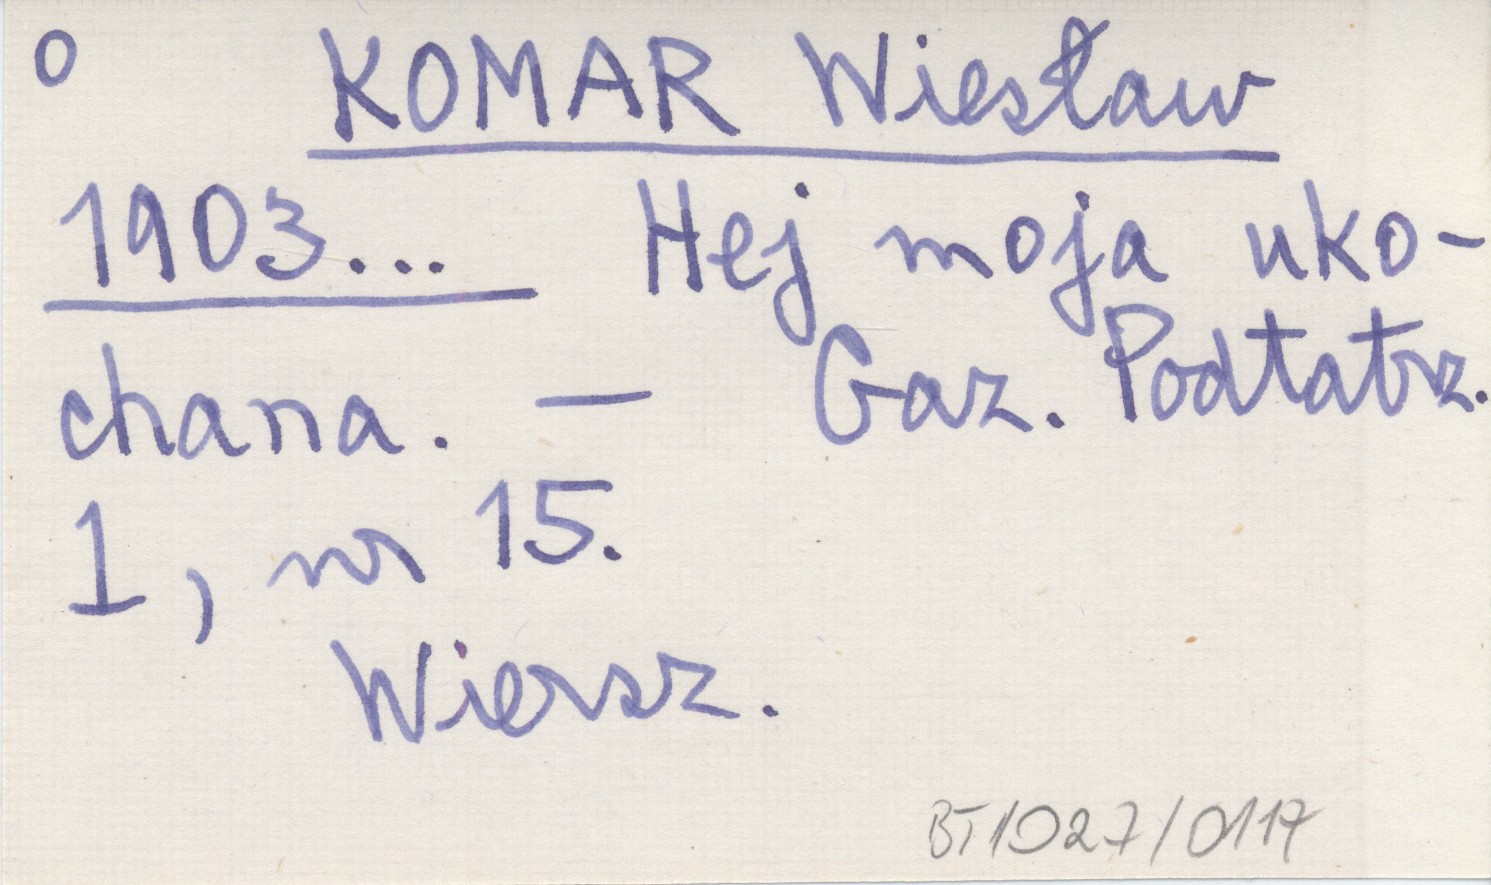 o KOMAR Wiesław
1903... Hej moja uko-
chana. — Gaz. Podtatrz.
1, nr 15.
Wiersz.
BT1027/0117